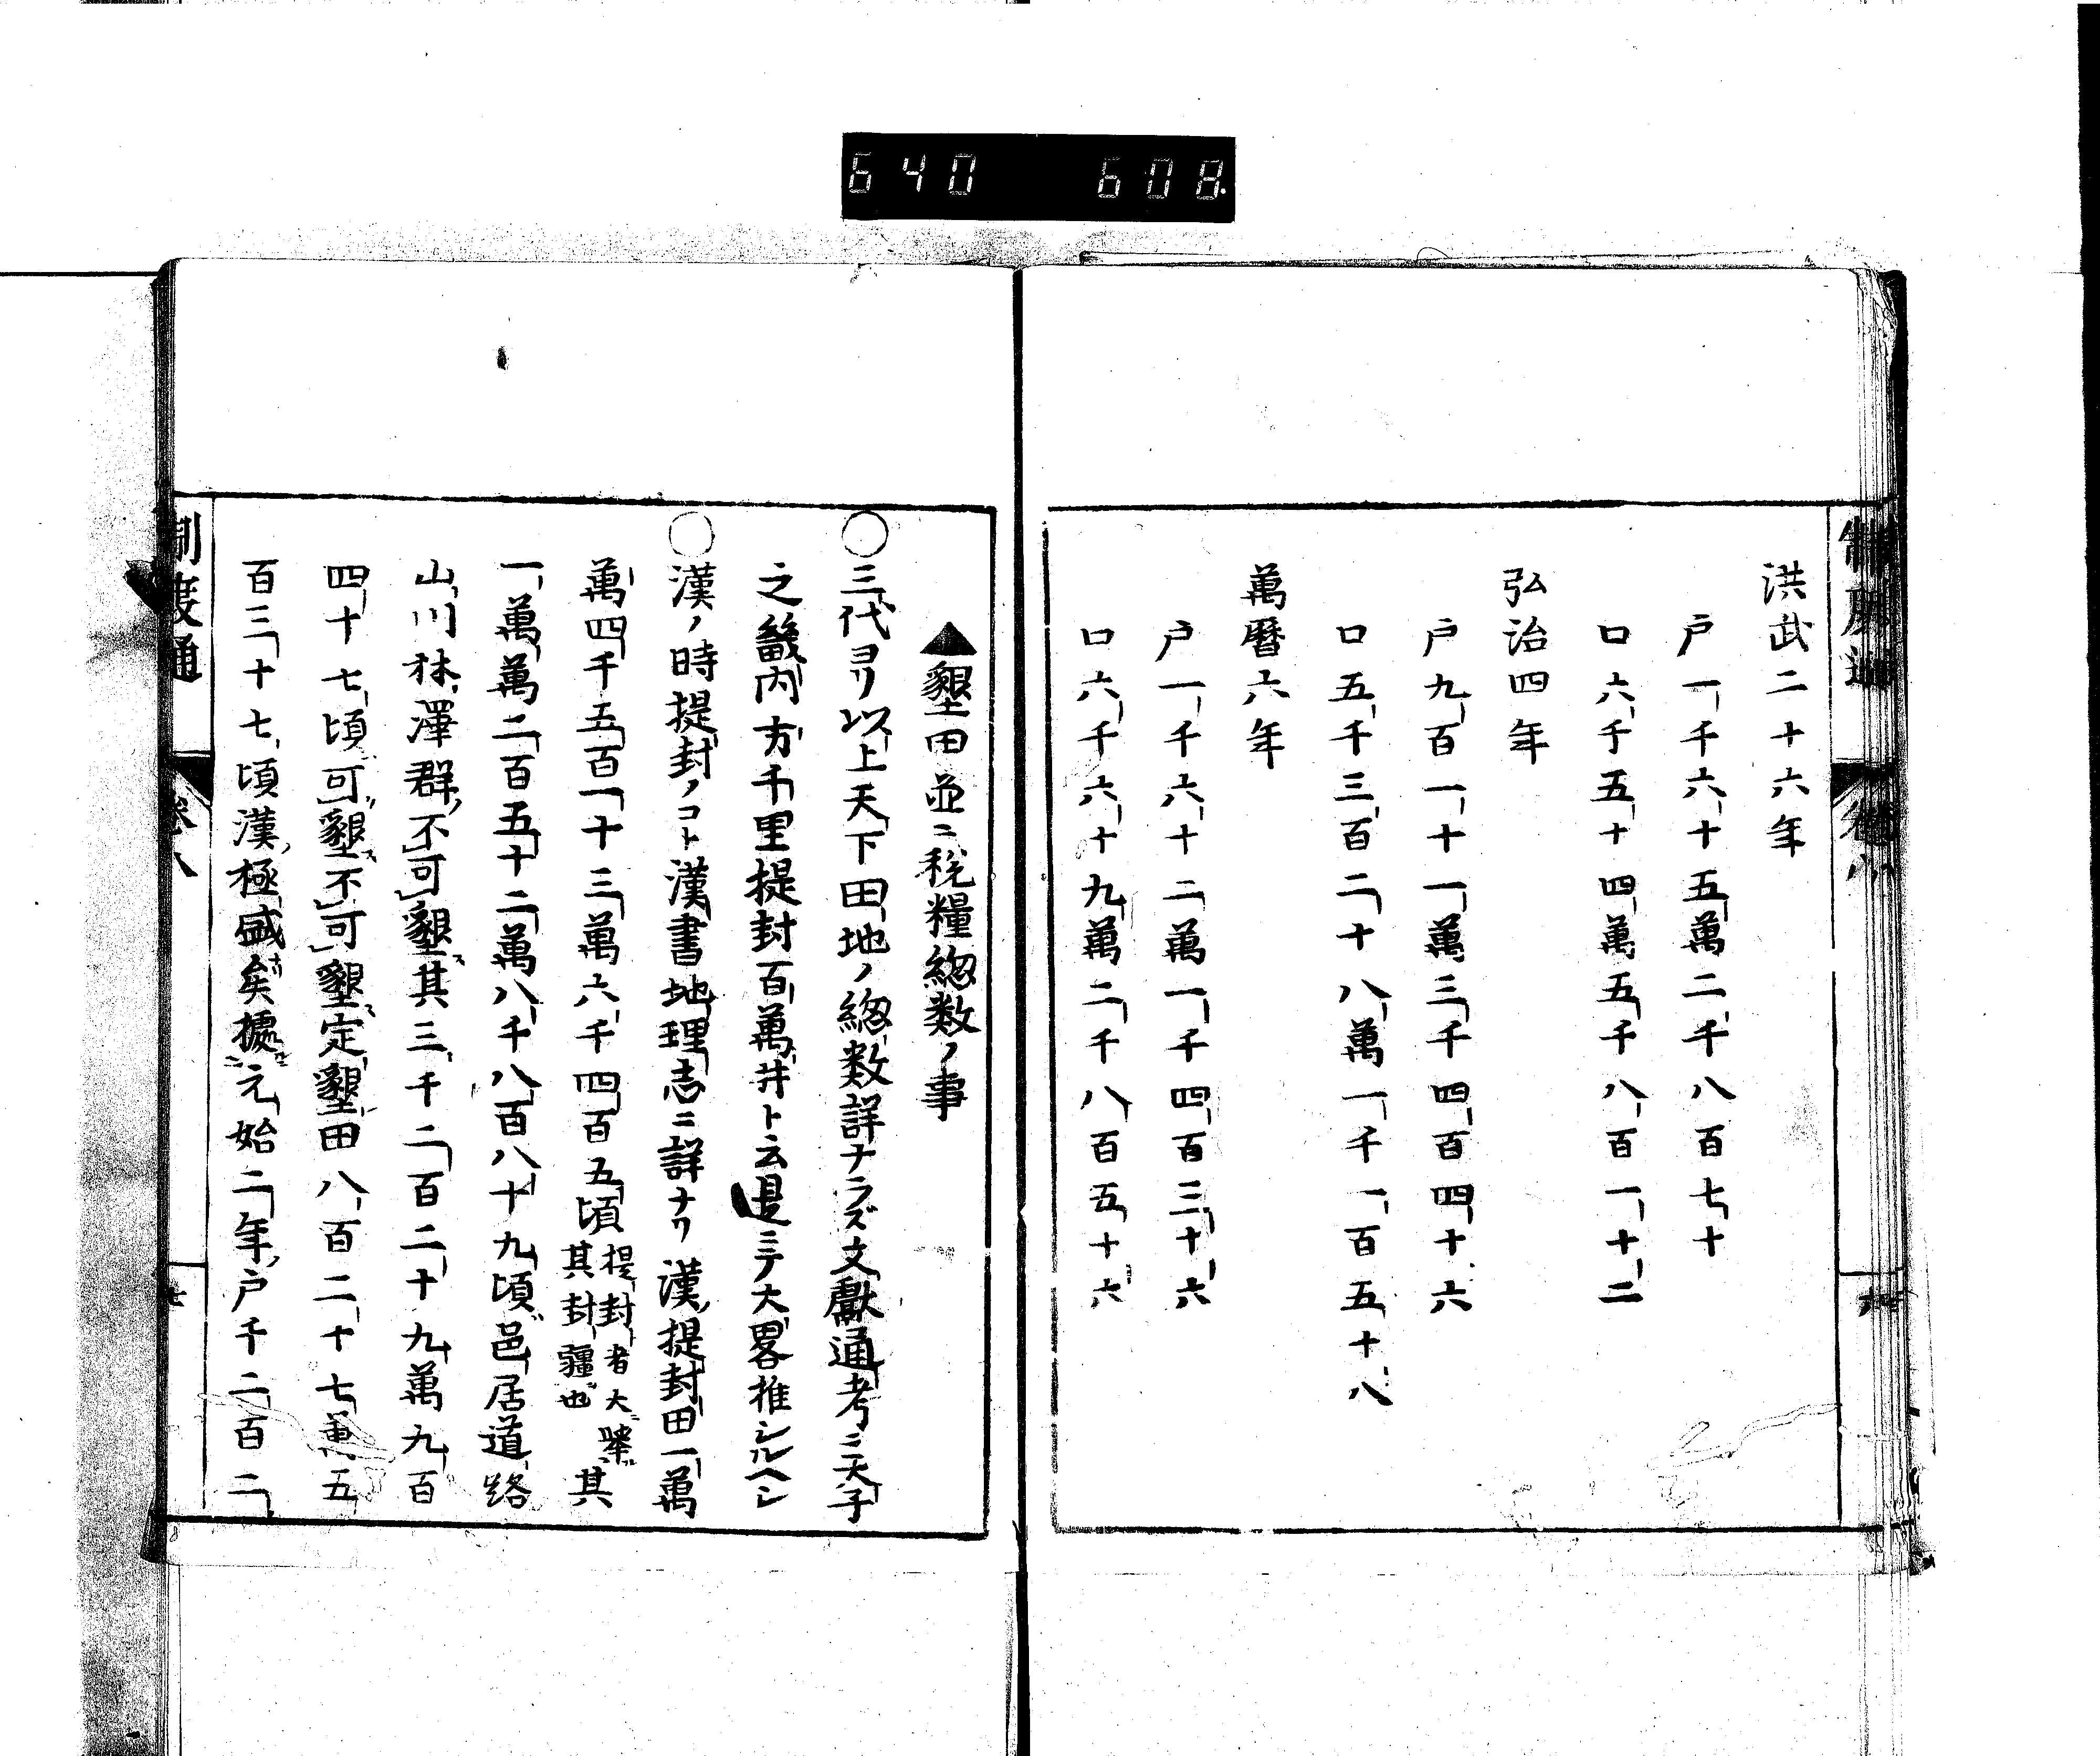 640 608
制度通 卷八
洪武二十六年
戸一千六十五萬二千八百七十
口六千五十四萬五千八百一十二
弘治四年
戸九百一十一萬三千四百四十六
口五千三百二十八萬一千一百五十八
萬曆六年
戸一千六十二萬一千四百三十六
口六千六十九萬二千八百五十六
▲墾田並ニ稅糧緫数ノ事
○三代ヨリ以上天下田地ノ緫数詳ナラズ文獻通考ニ天子
之畿内方千里提封百萬井ト云是ニテ大畧推シルヘシ
○漢ノ時提封ノコト漢書地理志ニ詳ナリ漢提封田一萬
萬四千五百一十三萬六千四百五頃提封者大擧其封疆也其
一萬萬二百五十二萬八千八百八十九頃邑居道路
山川林澤群不可墾其三千二百二十九萬九百
四十七頃可墾不可墾定墾田八百二十七萬五
百三十七頃漢極盛矣據元始二年戸千二百二
制度通 卷八 七